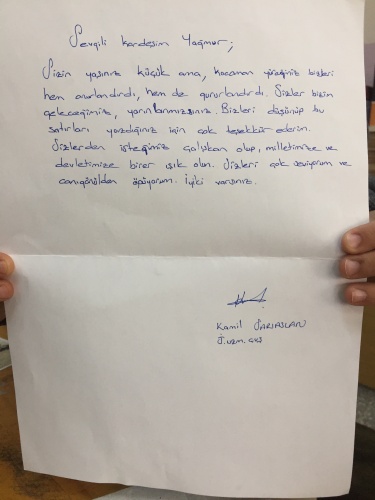 Sevgili kardeşim Yağmur;
Sizin yaşınız küçük ama, kocaman yüreğiniz bizleri
hem onurlandırdı, hem de gururlandırdı. Sizler bizim
geleceğimiz, yarınlarımızsınız. Bizleri düşünüp bu
satırları yazdığınız için çok teşekkür ederim.
Sizlerden isteğimiz çalışkan olup, milletimize ve
devletimize birer ışık olun. Sizleri çok seviyorum ve
canıgönülden öpüyorum. İyiki varsınız.
Kamil SARIASLAN
J. uzm. çvş